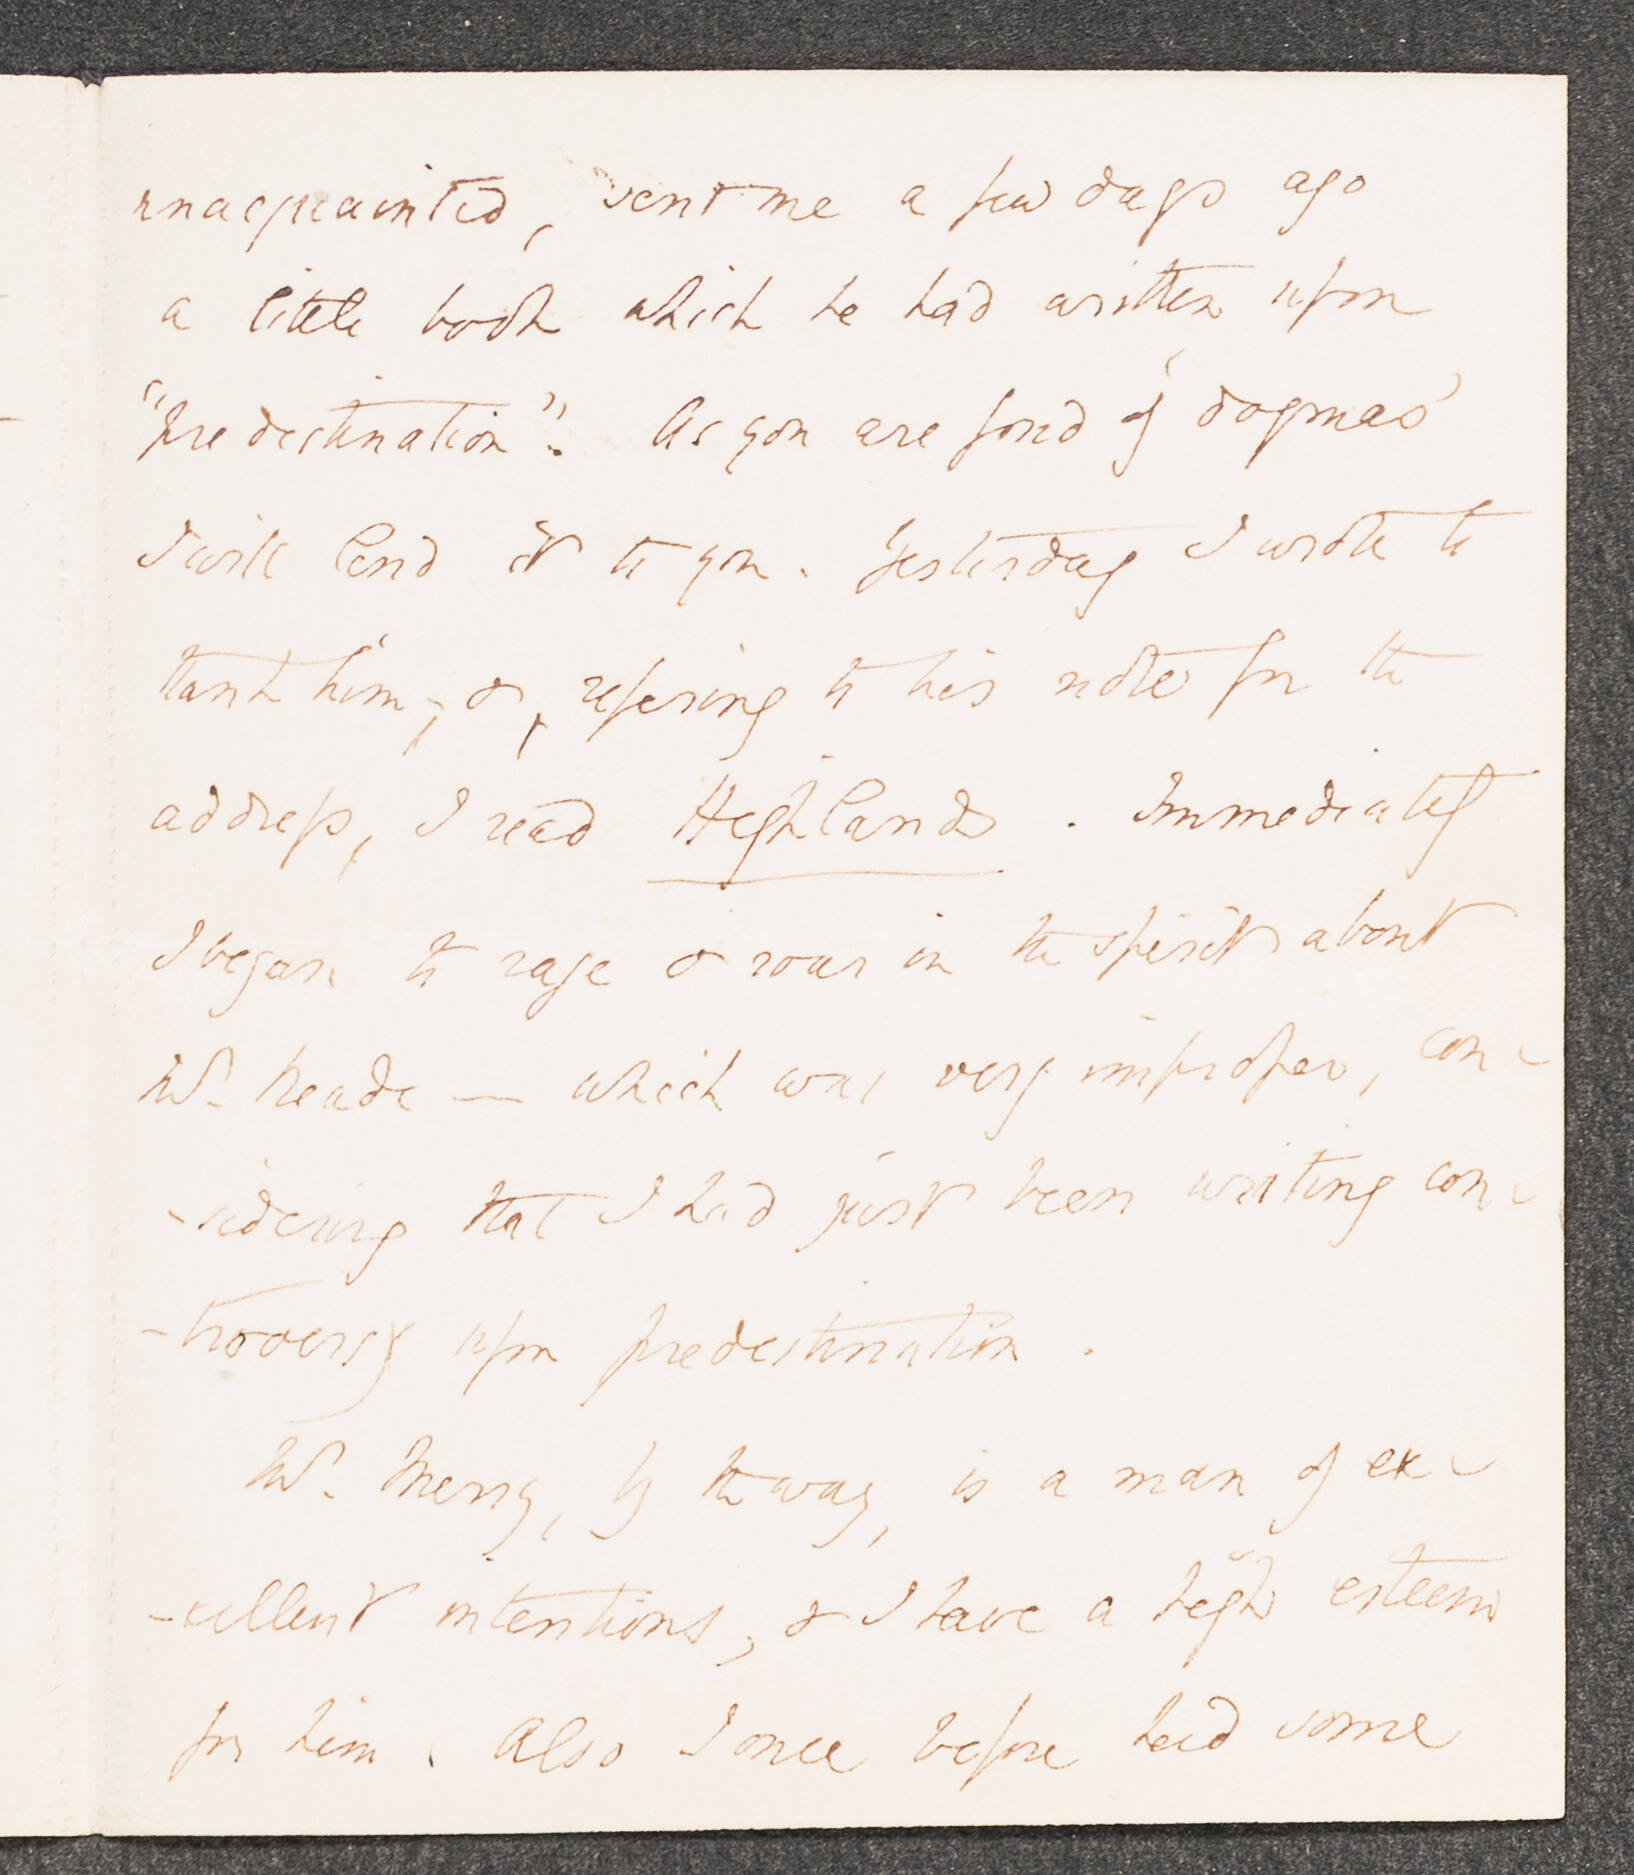 unacquainted, sent me a few days ago
a little book which he had written upon
"predestination". As you are fond of 'dogmas'
I will lend it to you. Yesterday I wrote to
thank him; & , refering to his note for the
address, I read Highlands. Immediately
I began to rage & roar in the spirit about
Mr. Reade — which was very improper, con-
-sidering that I had just been writing con-
-troversy upon predestination.
Mr. Merry, by the way, is a man of ex-
-cellent intentions, & I have a high esteem
for him. Also I once before had some